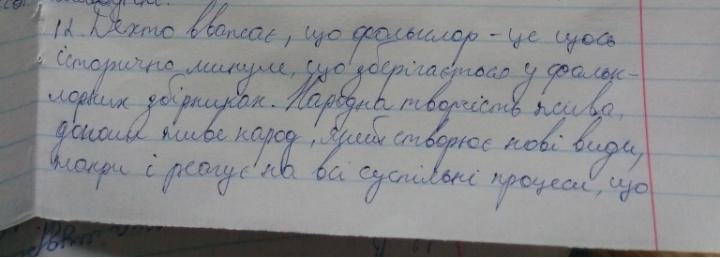 12. Дехто вважає, що фольклор - це щось
історично минуле, що зберігається у фольк-
лорних збірниках. Народна творчість жива,
допоки живе народ, який створює нові види,
жанри і реагує на всі суспільні процеси, що